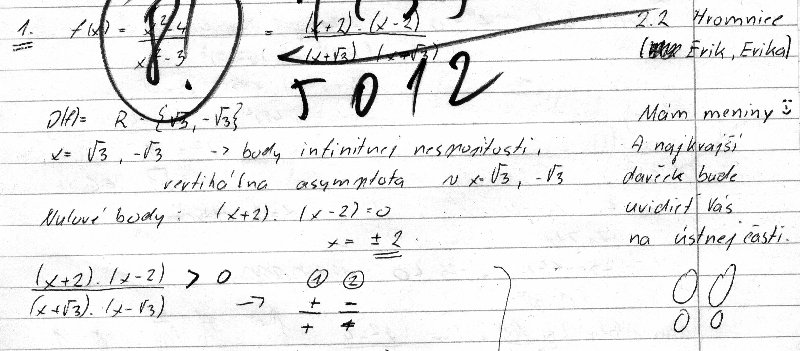 1. f(x) = x²-4 / x²-3 = (x+2).(x-2) / (x+√3).(x-√3)
5012
2.2 Hromnice
(Erik, Erika)
D(f)= R - {√3, -√3}
x= √3, -√3 -> body infinitnej nespojitosti.
vertikálna asymptota v x=√3, -√3
Nulové body: (x+2).(x-2)=0
x= ±2
Mám meniny
A najkrajší
darček bude
uvidieť Vás
na ústnej časti.
(x+2).(x-2) / (x+√3).(x-√3) > 0 -> ① + / + ② - / +